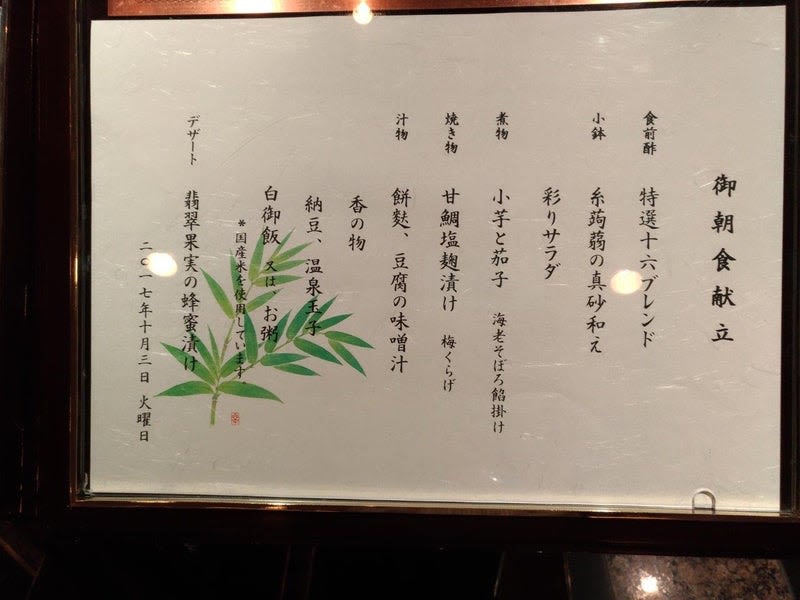 御朝食献立
食前酢 特選十六ブレンド
小鉢 糸蒟蒻の真砂和え
彩りサラダ
煮物 小芋と茄子 海老そぼろ餡掛け
焼き物 甘鯛塩麹漬け 梅くらげ
汁物 餅麩、豆腐の味噌汁
香の物
納豆、温泉玉子
白御飯 又は、お粥
*国産米を使用しています。
デザート 翡翠果実の蜂蜜漬け
二〇一七年十月三日 火曜日